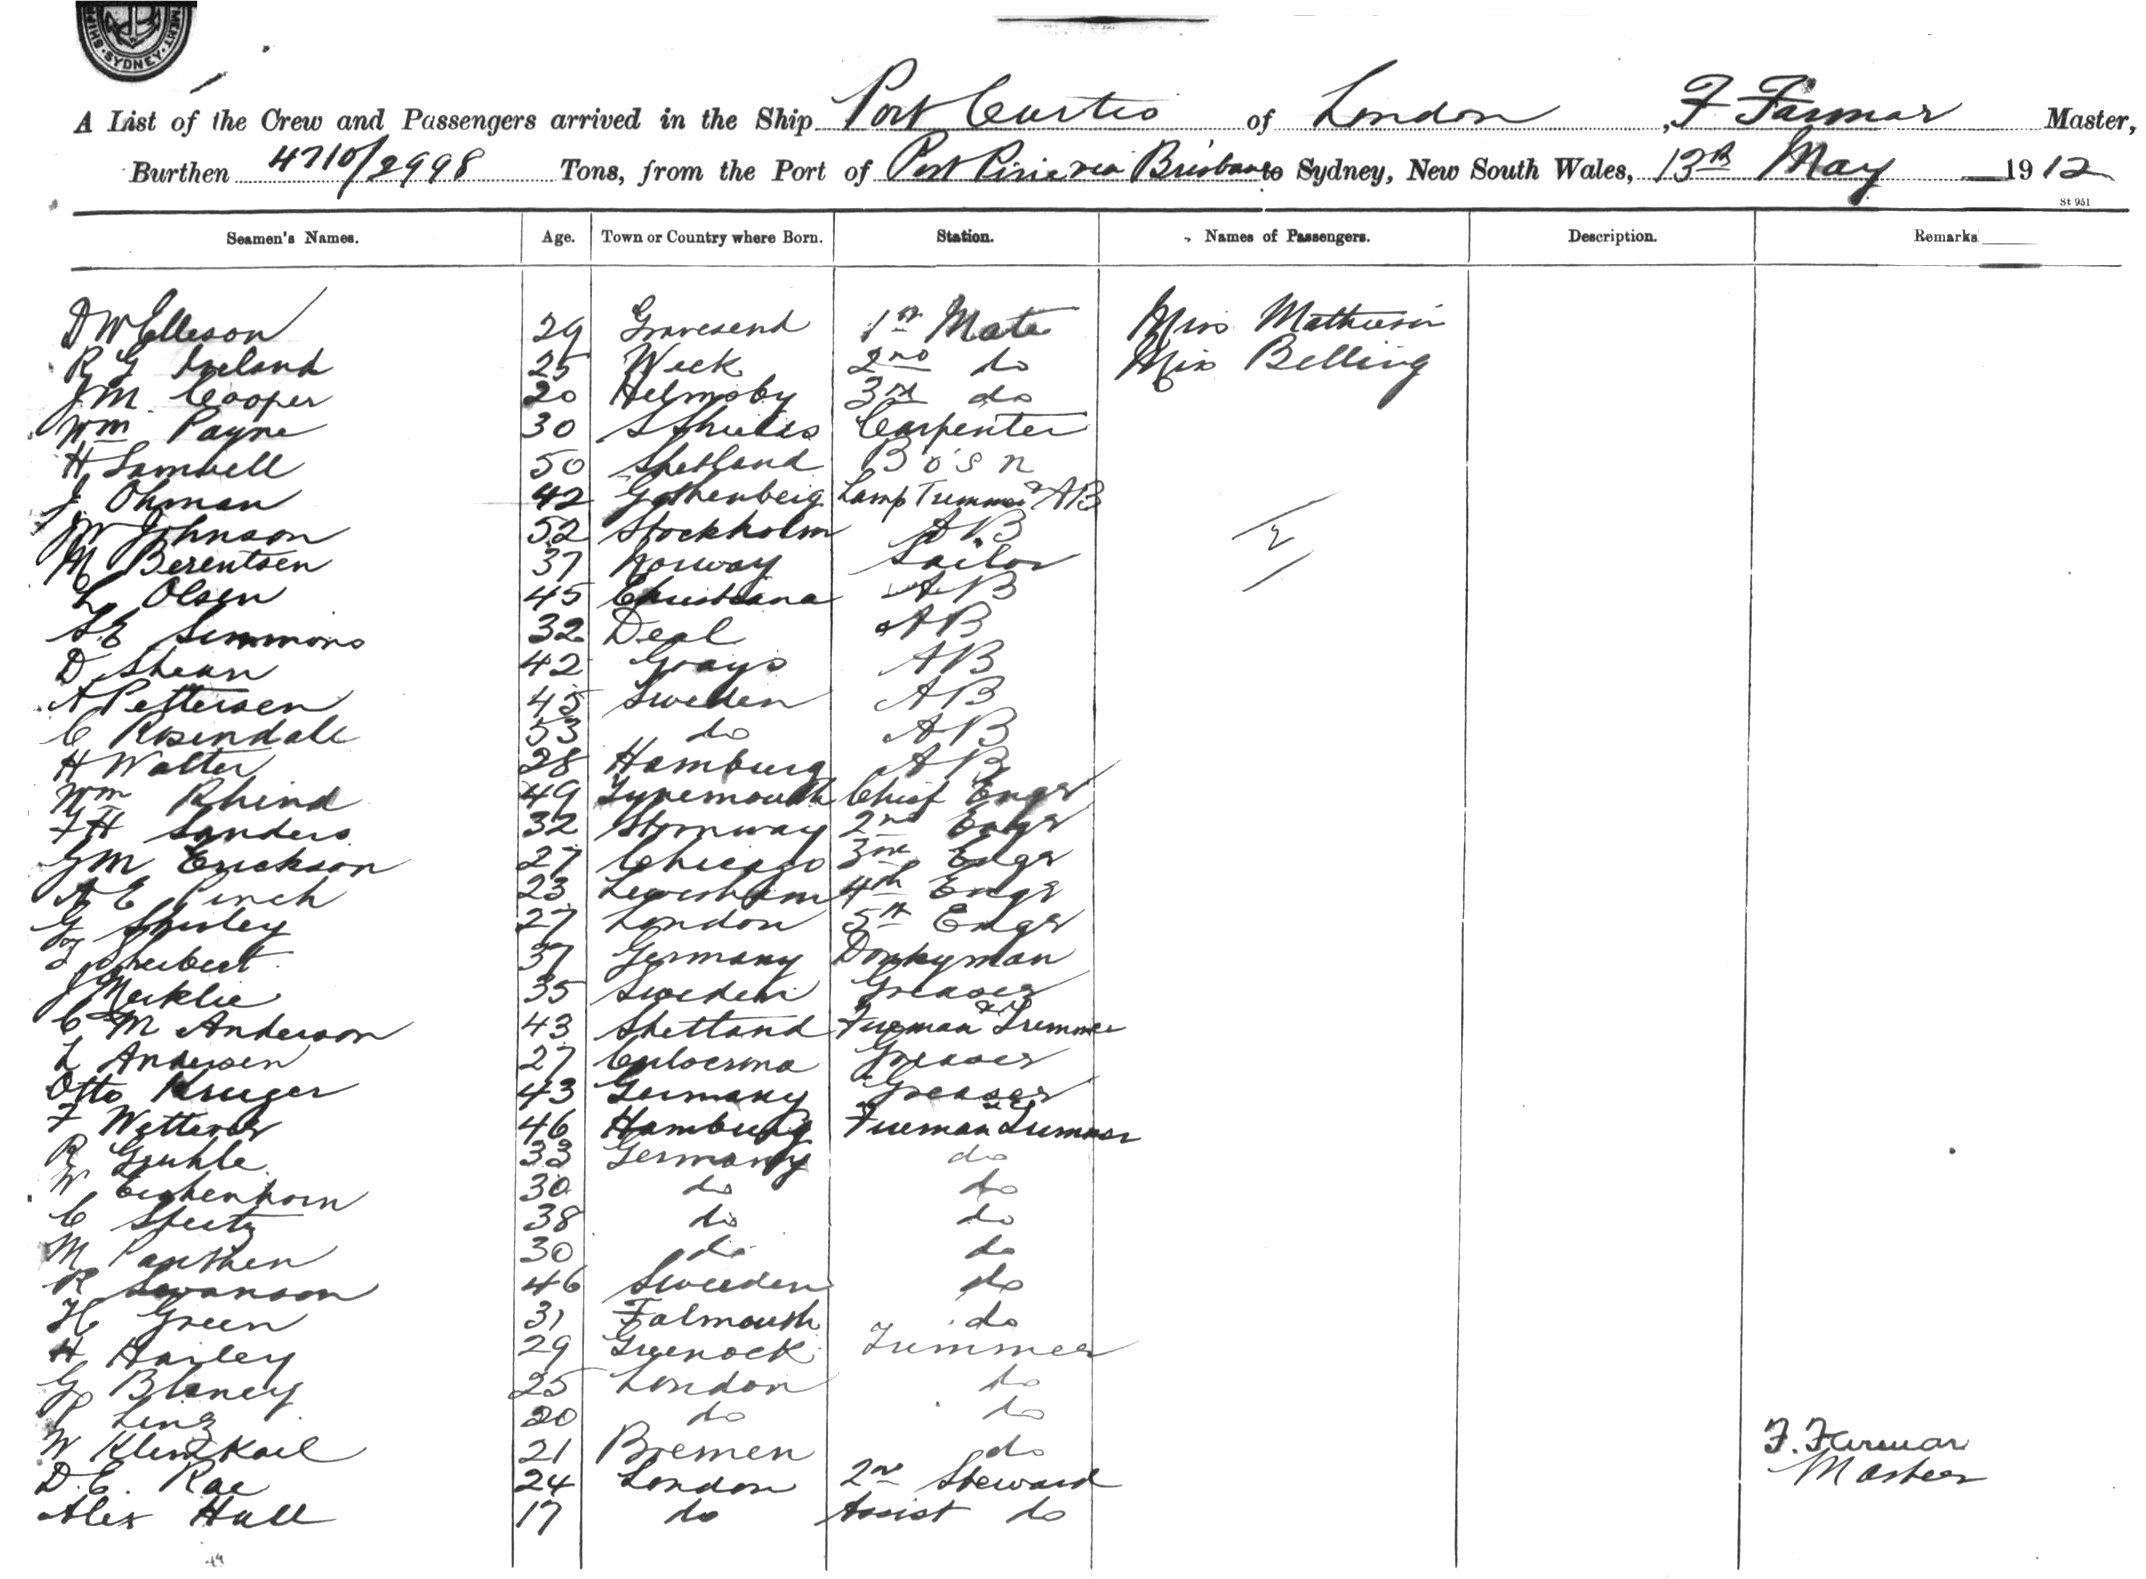 SYDNEY
A List of the Crew and Passengers arrived in the Ship Port Curtis of London, F Farmar Master,
Burthen 4710/2998 Tons, from the Port of Port Pirie via Brisbane to Sydney, New South Wales, 13th May 1912
St 951
Seamen's Names. Age. Town or Country where Born. Station. Names of Passengers. Description. Remarks
D W Elleson 29 Gravesend 1st Mate Miss
R G Ireland 25 Wick 2nd do Miss Belling
J M Cooper 20 Helmsby 3rd do
Wm Payne 30 S Shields Carpenter
H Lambell 50 Shetland Bosn
J. Ohman 42 Gothenberg Lamp Trimmer & AB
J W Johnson 52 Stockholm AB
M Berentsen 37 Norway Sailor
L Olsen 45 Christiana AB
S.E Simmons 32 Deal AB
D Shean 42 Grays AB
A Pettersen 45 Sweden AB
C Rosendale 53 do AB
H Walter 28 Hamburg AB
Wm Rhind 49 Tynemouth Chief Engr
F H Sanders 32 Stornway 2nd Engr
G M Erickson 27 Chicago 3rd Engr
A E Pinch 23 Lewisham 4th Engr
G Shirley 27 London 5th Engr
37 Germany Donkyman
J 35 Sweden Greaser
C M Anderson 43 Shetland Fireman & Trimmer
L Andersen 27 Greaser
Otto Kruger 43 Germany Greaser
F 46 Hamburg Fireman & Trimmer
R Gruhle 33 Germany do
W Eichenhorn 30 do do
C 38 do do
M Panthen 30 do do
R Swanson 46 Sweeden do
H Green 31 Falmouth do
H Harley 29 Greenock Trimmer
G Blaney 25 London do
20 do do
W 21 Bremen do F. Farmar
D.E. Rae 24 London 2nd Steward Master
Alex Hull 17 do Assist do